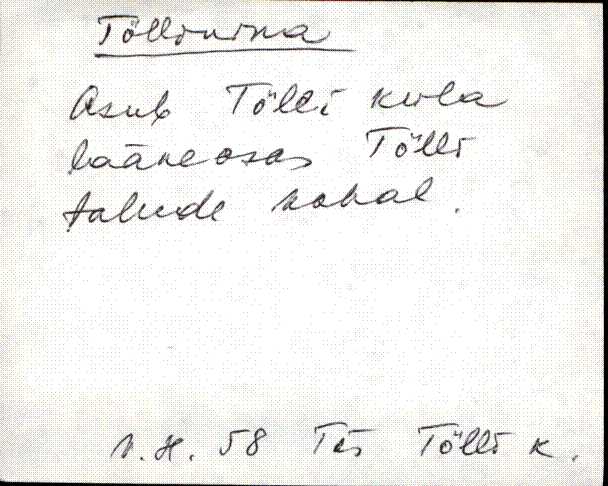 Töllinina
Asub Tölli küla
lääneosas Tölli
talude kohal.
V.H. 58 Tõs Tölli k.